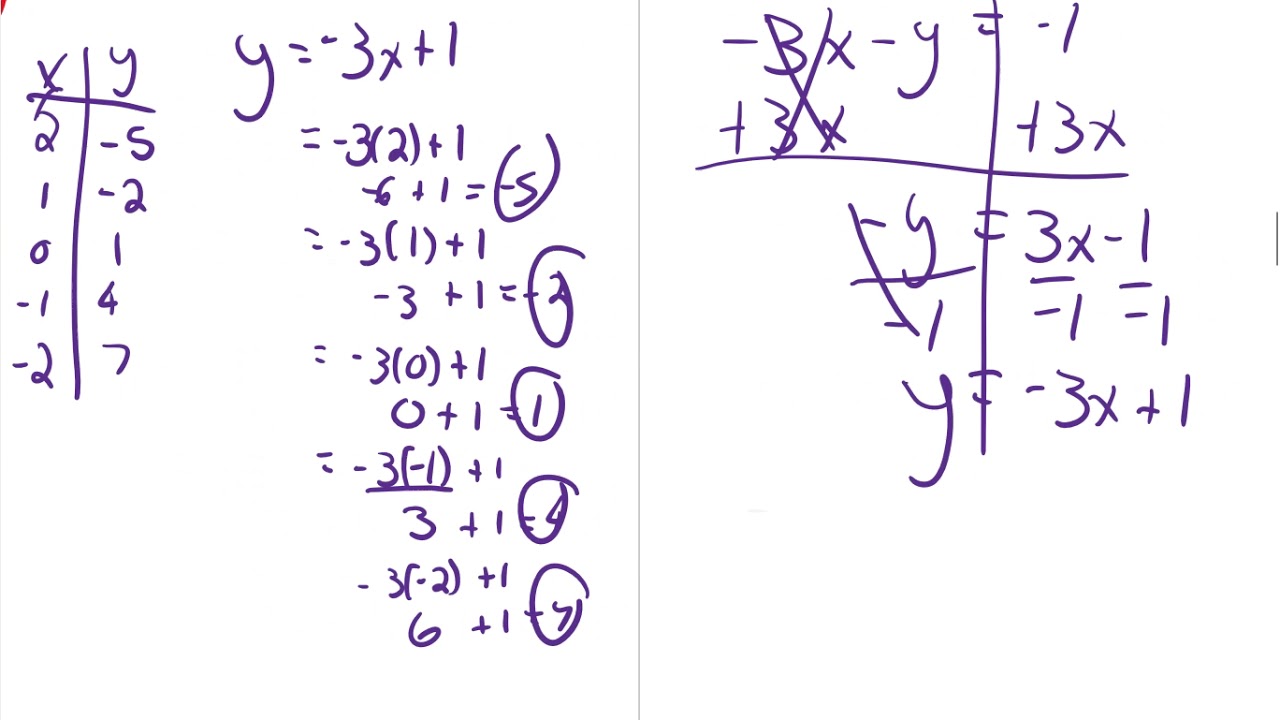 x y
2 -5
1 -2
0 1
-1 4
-2 7
y = -3x + 1
= -3(2) + 1
-6 + 1 = -5
= -3(1) + 1
-3 + 1 = -2
= -3(0) + 1
0 + 1 = 1
= -3(-1) + 1
3 + 1 = 4
-3(-2) + 1
6 + 1 = 7
-3x - y = -1
+3x +3x
-y = 3x - 1
-1 -1 -1
y = -3x + 1